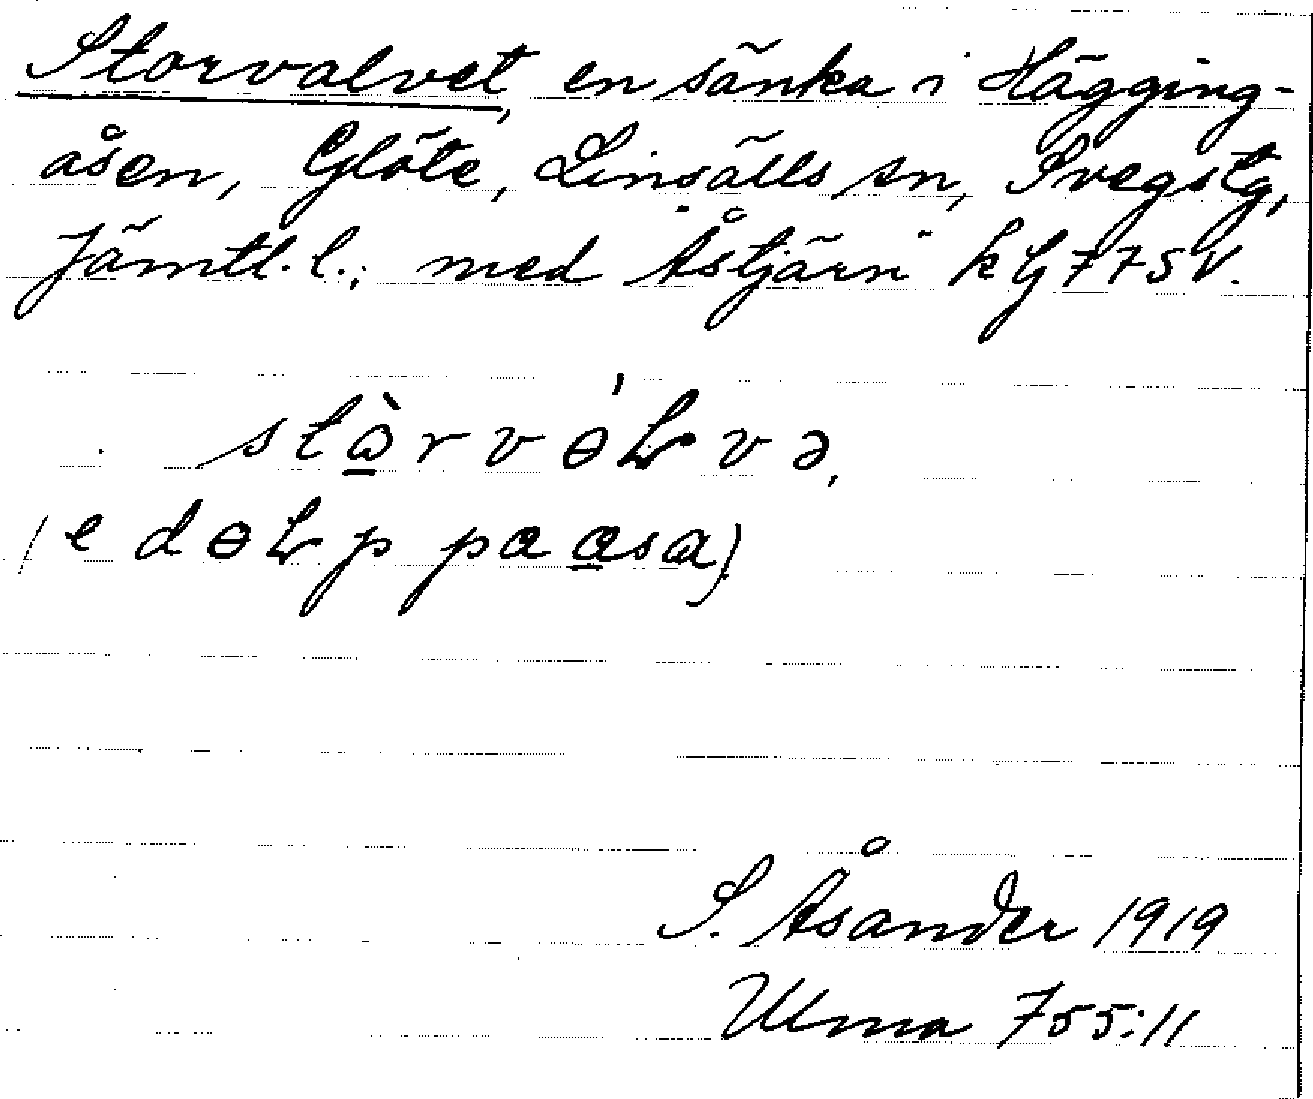 Storvalvet, en sänka i Hägging-
åsen, Glöte, Linsälls sn, Svegs tg,
Jämtl. l.; med Åstjärn k G 77 S V.
stɷ̀rvɵ́Ƚvə,
(e dɵȽp pɑ ɑsɑ).
S. Åsander 1919
Ulma 755:11